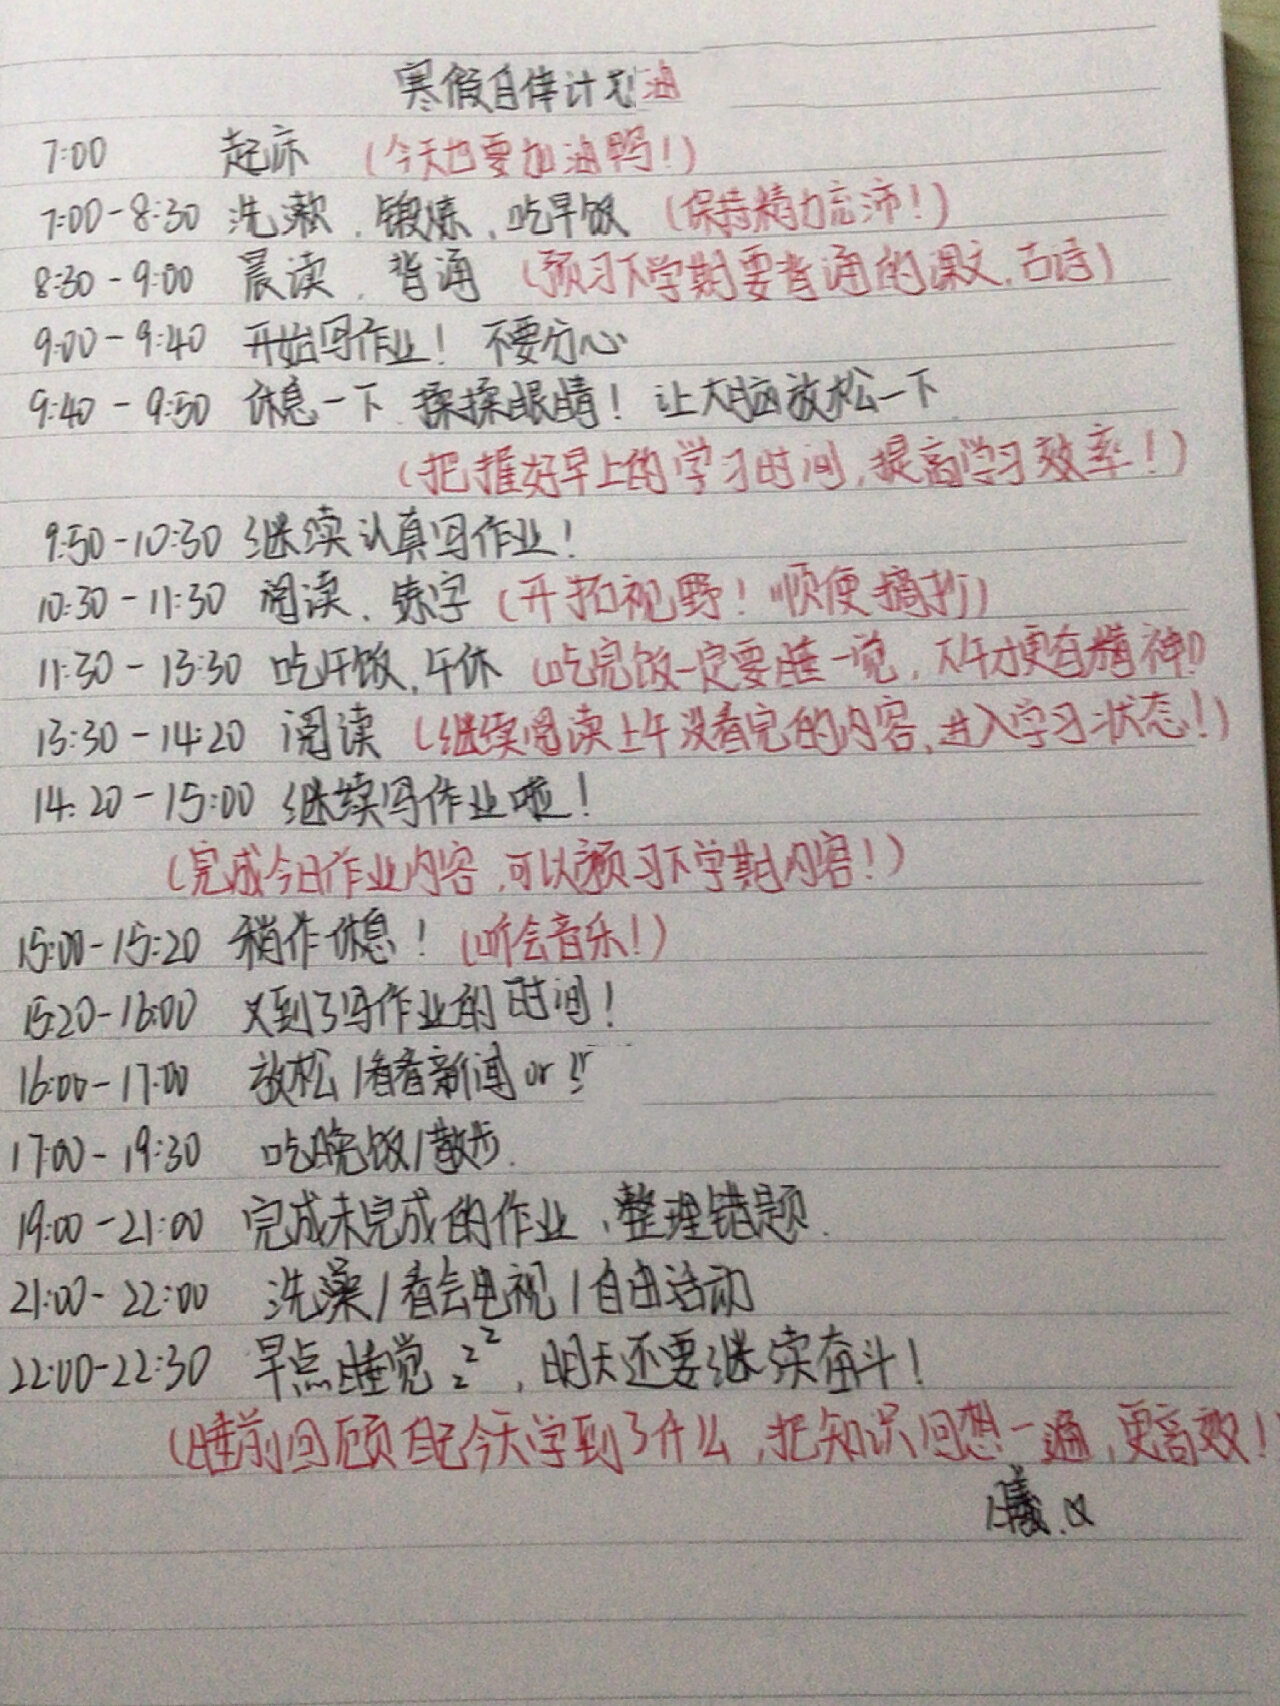 寒假自律计划
7:00 起床 (今天也要加油鸭!)
7:00-8:30 洗漱、锻炼、吃早饭 (保持精力充沛!)
8:30-9:00 晨读、背诵 (预习下学期要背诵的课文、古诗)
9:00-9:40 开始写作业! 不要分心
9:40-9:50 休息一下 揉揉眼睛! 让大脑放松一下
(把握好早上的学习时间,提高学习效率!)
9:50-10:30 继续认真写作业!
10:30-11:30 阅读、练字 (开拓视野! 顺便摘抄)
11:30-13:30 吃午饭,午休 (吃完饭一定要睡一觉,下午才更有精神!)
13:30-14:20 阅读 (继续阅读上午没看完的内容,进入学习状态!)
14:20-15:00 继续写作业啦!
(完成今日作业内容,可以预习下学期内容!)
15:00-15:20 稍作休息! (听会音乐!)
15:20-16:00 又到了写作业的时间!
16:00-17:00 放松/看看新闻or
17:00-19:30 吃晚饭/散步.
19:00-21:00 完成未完成的作业、整理错题.
21:00-22:00 洗澡/看会电视/自由活动
22:00-22:30 早点睡觉 zzz,明天还要继续奋斗!
(睡前回顾自己今天学到了什么,把知识回想一遍,更高效!